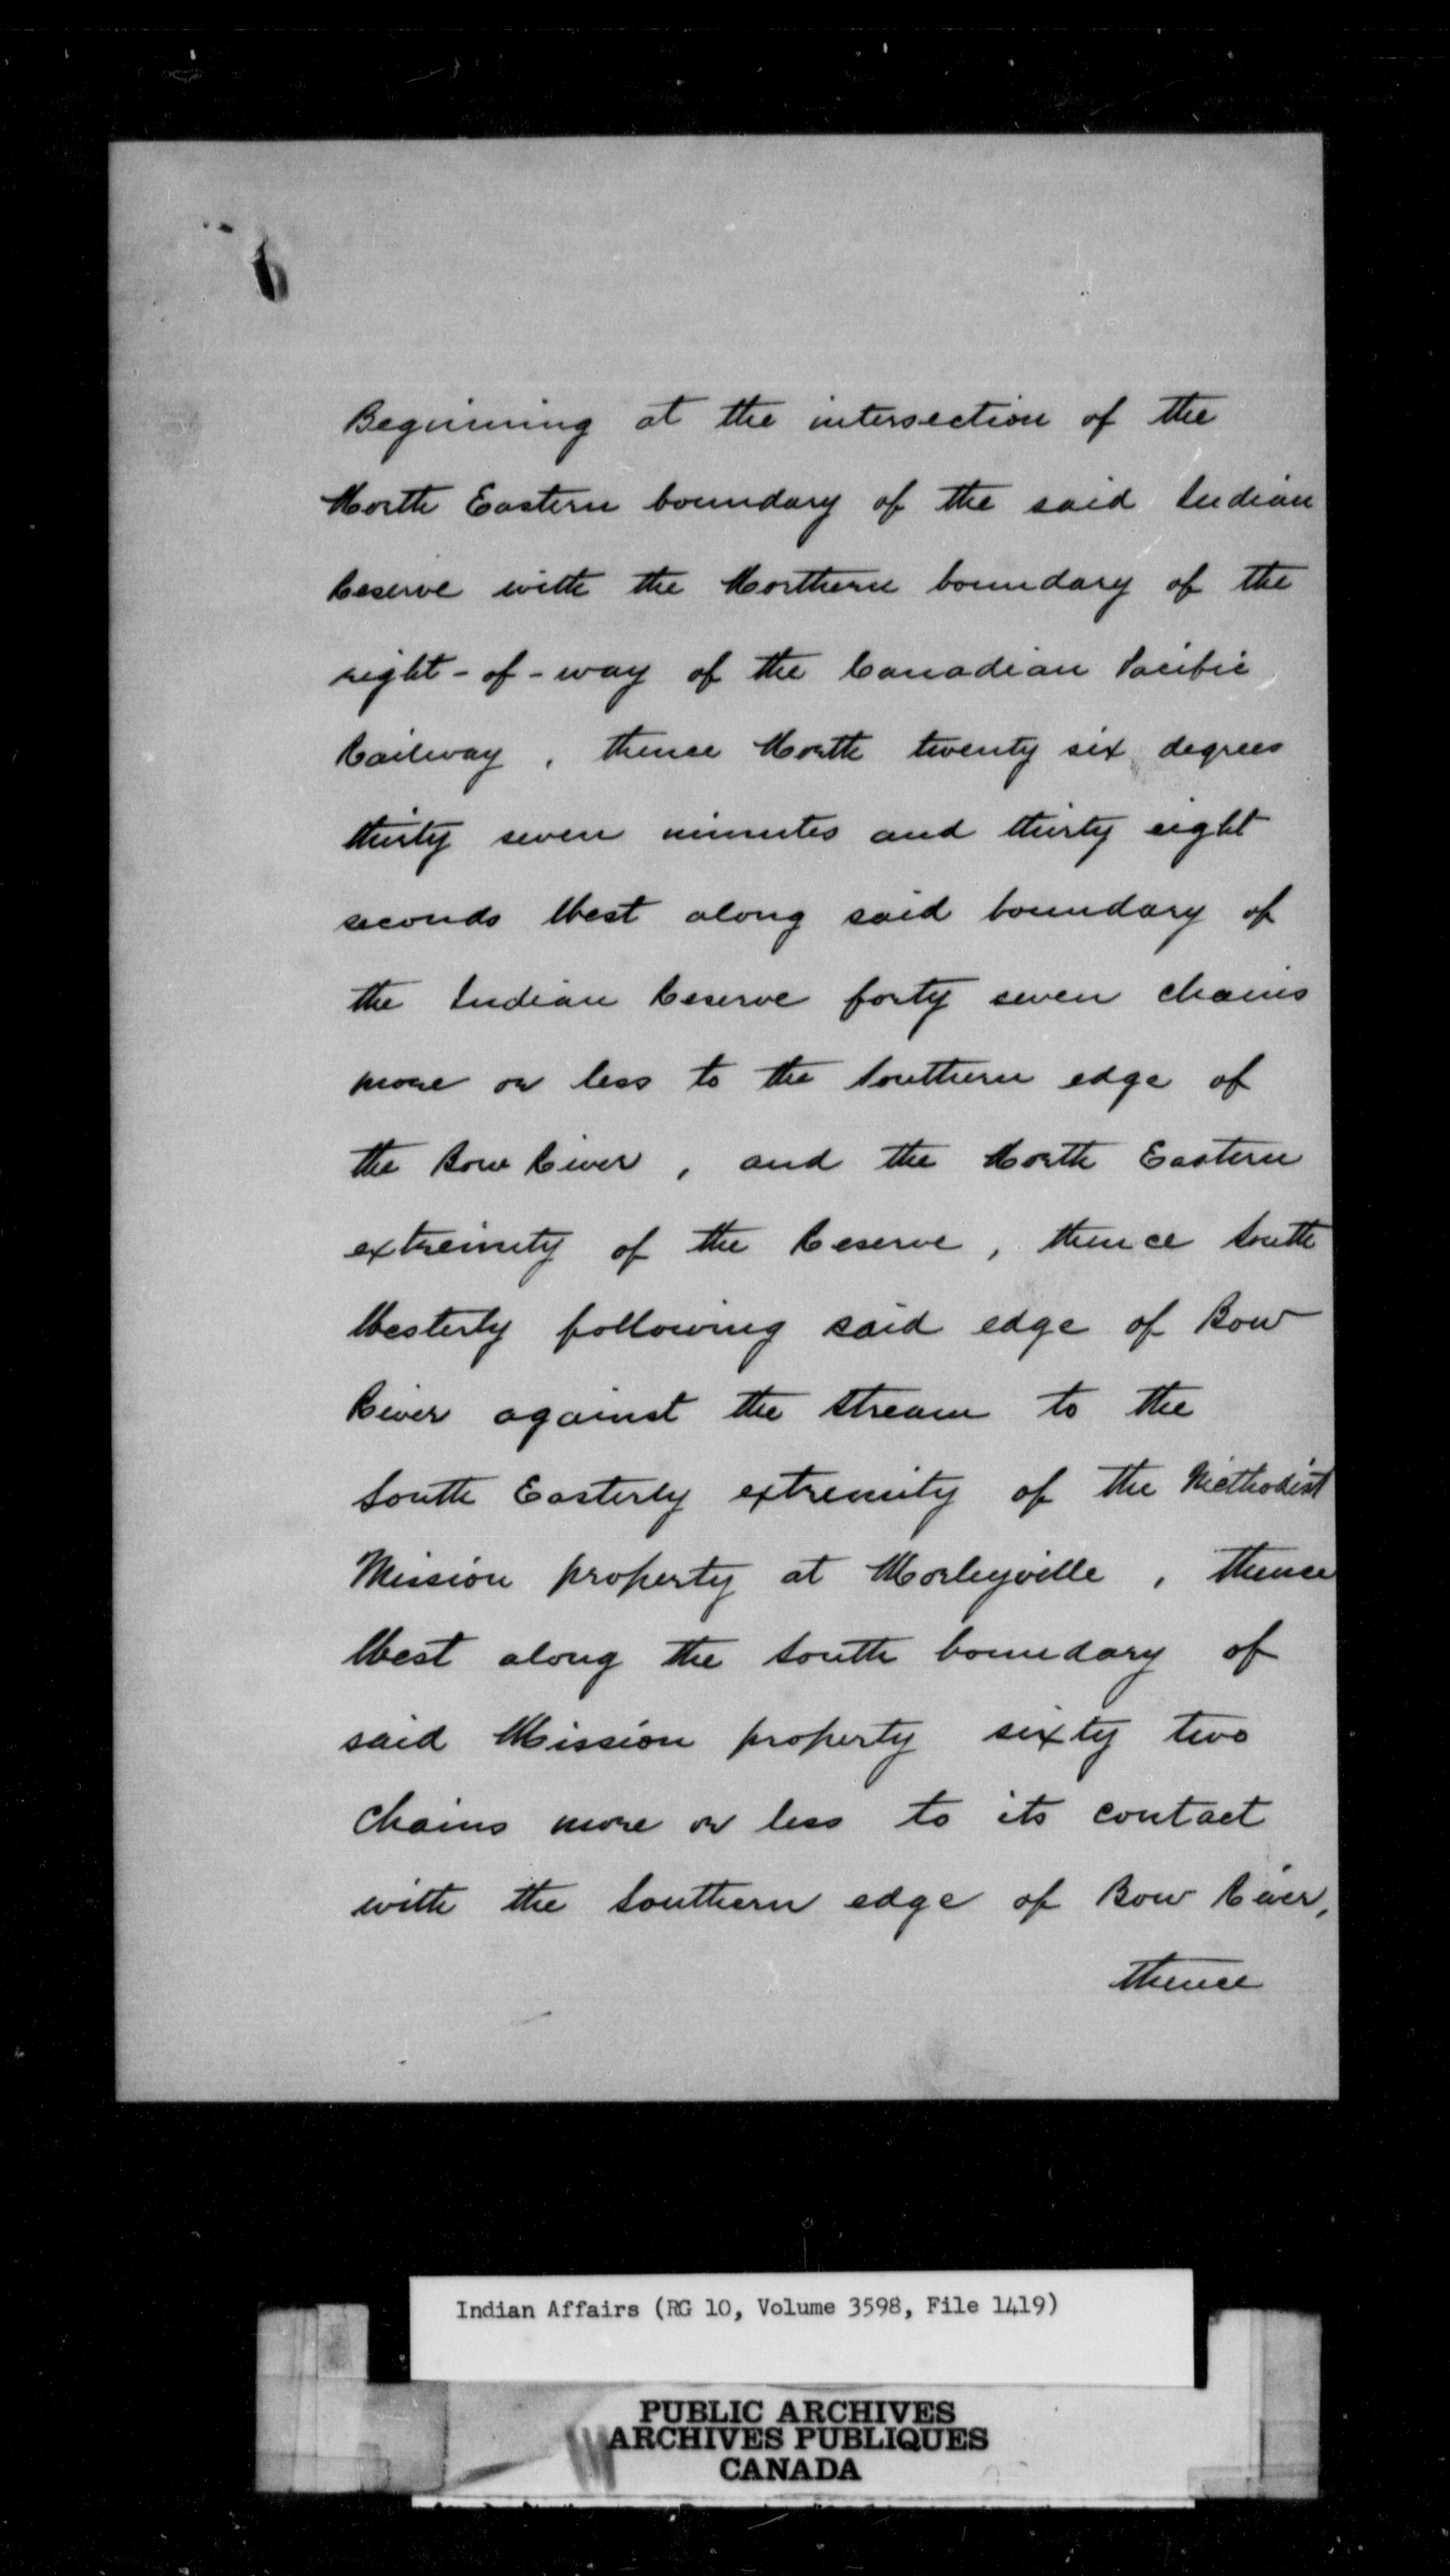 Beginning at the intersection of the
North Eastern boundary of the said Indian
Reserve with the Northern boundary of the
right-of-way of the Canadian Pacific
Railway, thence North twenty six degrees
thirty seven minutes and thirty eight
seconds West along said boundary of
the Indian Reserve forty seven chains
more or less to the Southern edge of
the Bow River, and the North Eastern
extremity of the Reserve, thence South
Westerly following said edge of Bow
River against the stream to the
South Easterly extremity of the Methodist
Mission property at Morleyville, thence
West along the South boundary of
said Mission property sixty two
chains more or less to its contact
with the Southern edge of Bow River,
thence
Indian Affairs (RG 10, Volume 3598, File 1419)
PUBLIC ARCHIVES
ARCHIVES PUBLIQUES
CANADA